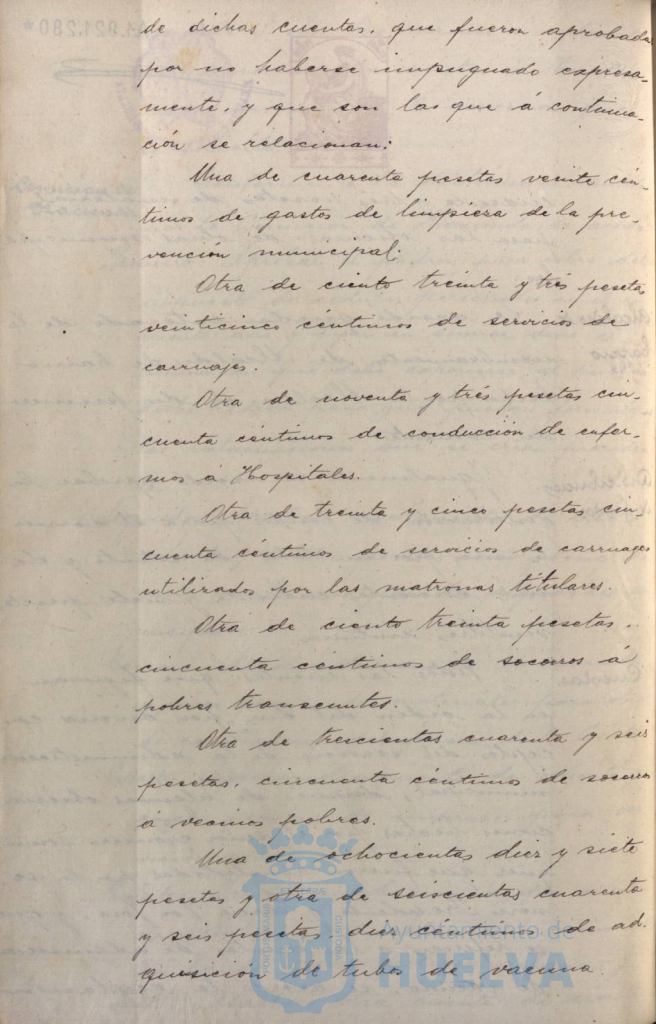 de dichas cuentas, que fueron aprobadas
por no haberse impugnado expresa-
mente, y que son las que á continua-
ción se relacionan:
Una de cuarenta pesetas veinte cén-
timos de gastos de limpieza de la pre-
vención municipal.
Otra de ciento treinta y trés pesetas
veinticinco céntimos de servicios de
carruajes.
Otra de noventa y trés pesetas cin-
cuenta céntimos de conducción de enfer-
mos á Hospitales.
Otra de treinta y cinco pesetas cin-
cuenta céntimos de servicios de carruages
utilizados por las matronas titulares.
Otra de ciento treinta pesetas,
cincuenta céntimos de socorros á
pobres transeuntes.
Otra de trescientas cuarenta y seis
pesetas, cincuenta céntimos de socorros
á vecinos pobres.
Una de ochocientas diez y siete
pesetas y otra de seiscientas cuarenta
y seis pesetas, diez céntimos de ad-
quisición de tubos de vacuna
Ayuntamiento de
HUELVA